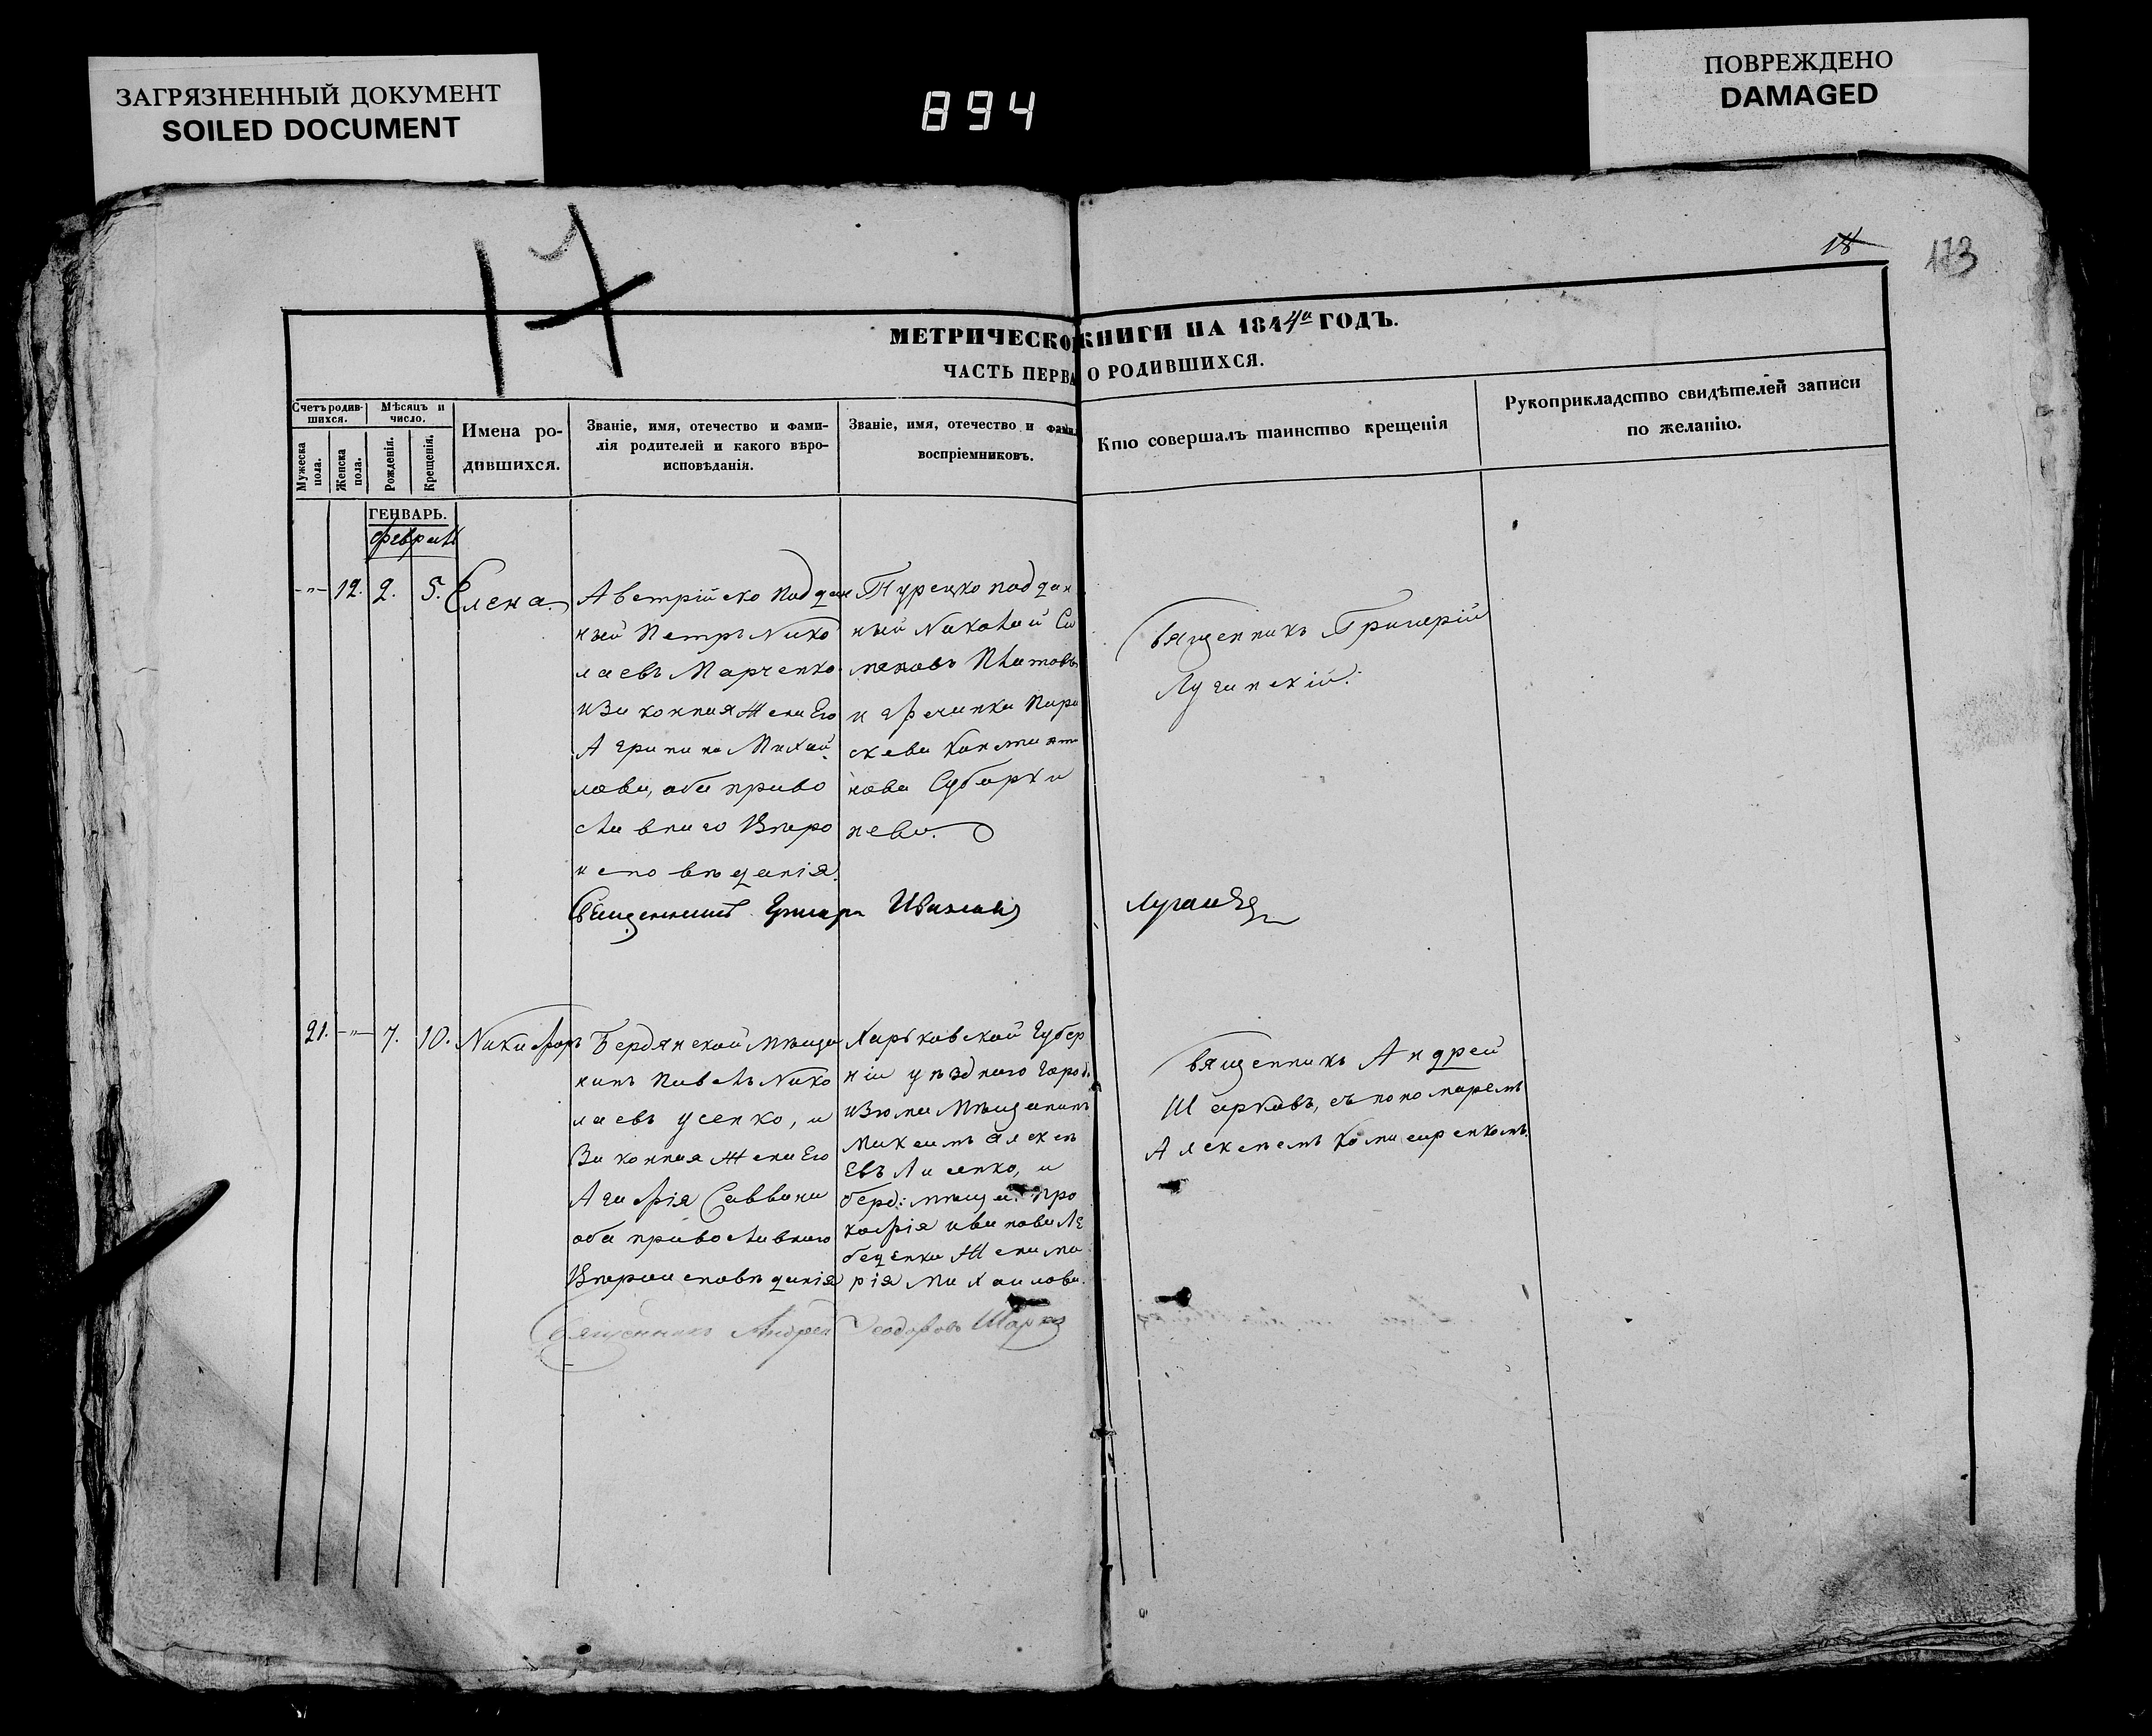 ЗАГРЯЗНЕННЫЙ ДОКУМЕНТ
SOILED DOCUMENT
894
ПОВРЕЖДЕНО
DAMAGED
17
18
173
МЕТРИЧЕСКО КНИГИ НА 1844й ГОДЪ.
ЧАСТЬ ПЕРВА О РОДИВШИХСЯ.
Счетъ родив-
шихся.
Мужеска
пола.
Женска
пола.
Мѣсяцъ и
число.
Рожденія.
Крещенія.
Имена ро-
дившихся.
Званіе, имя, отечество и фами-
лія родителей и какого вѣро-
исповѣданія.
Званіе, имя, отечество и фами
воспріемниковъ.
Кто совершалъ таинство крещенія
Рукоприкладство свидѣтелей записи
по желанію.
ГЕНВАРЬ.
февраль
-"- 12. 2. 5. Елена.
Австрійско поддан
ный Петръ Нико
лаевъ Марченко
и законная жена Его
Агрипина Михай
лова, оба право
славнаго Вѣро
исповѣданія.
Турецко поддан
ный Николай
Платовъ
и гречинка Пара
скева Констант
нова
Священникъ Григорій
Лучинскій.
Священникъ
21. -"- 7. 10. Никифоръ
Бердянской мѣща
нинъ Павелъ Нико
лаевъ Усенко, и
Законная жена Его
Агафія Саввина
оба православнаго
Вѣроисповѣданія
Харьковской Губер
ніи уѣзднаго города
Изюма мѣщанинъ
Максимъ Алексѣ
евъ Лисенко, и
берд: мѣща: Про
кофія Иванова Ле
беденка жена Ма
рія Михаилова.
Священникъ Андрей
Шарковъ, съ пономаремъ
Алексѣемъ
Священникъ Андрей Феодоровъ Шарко